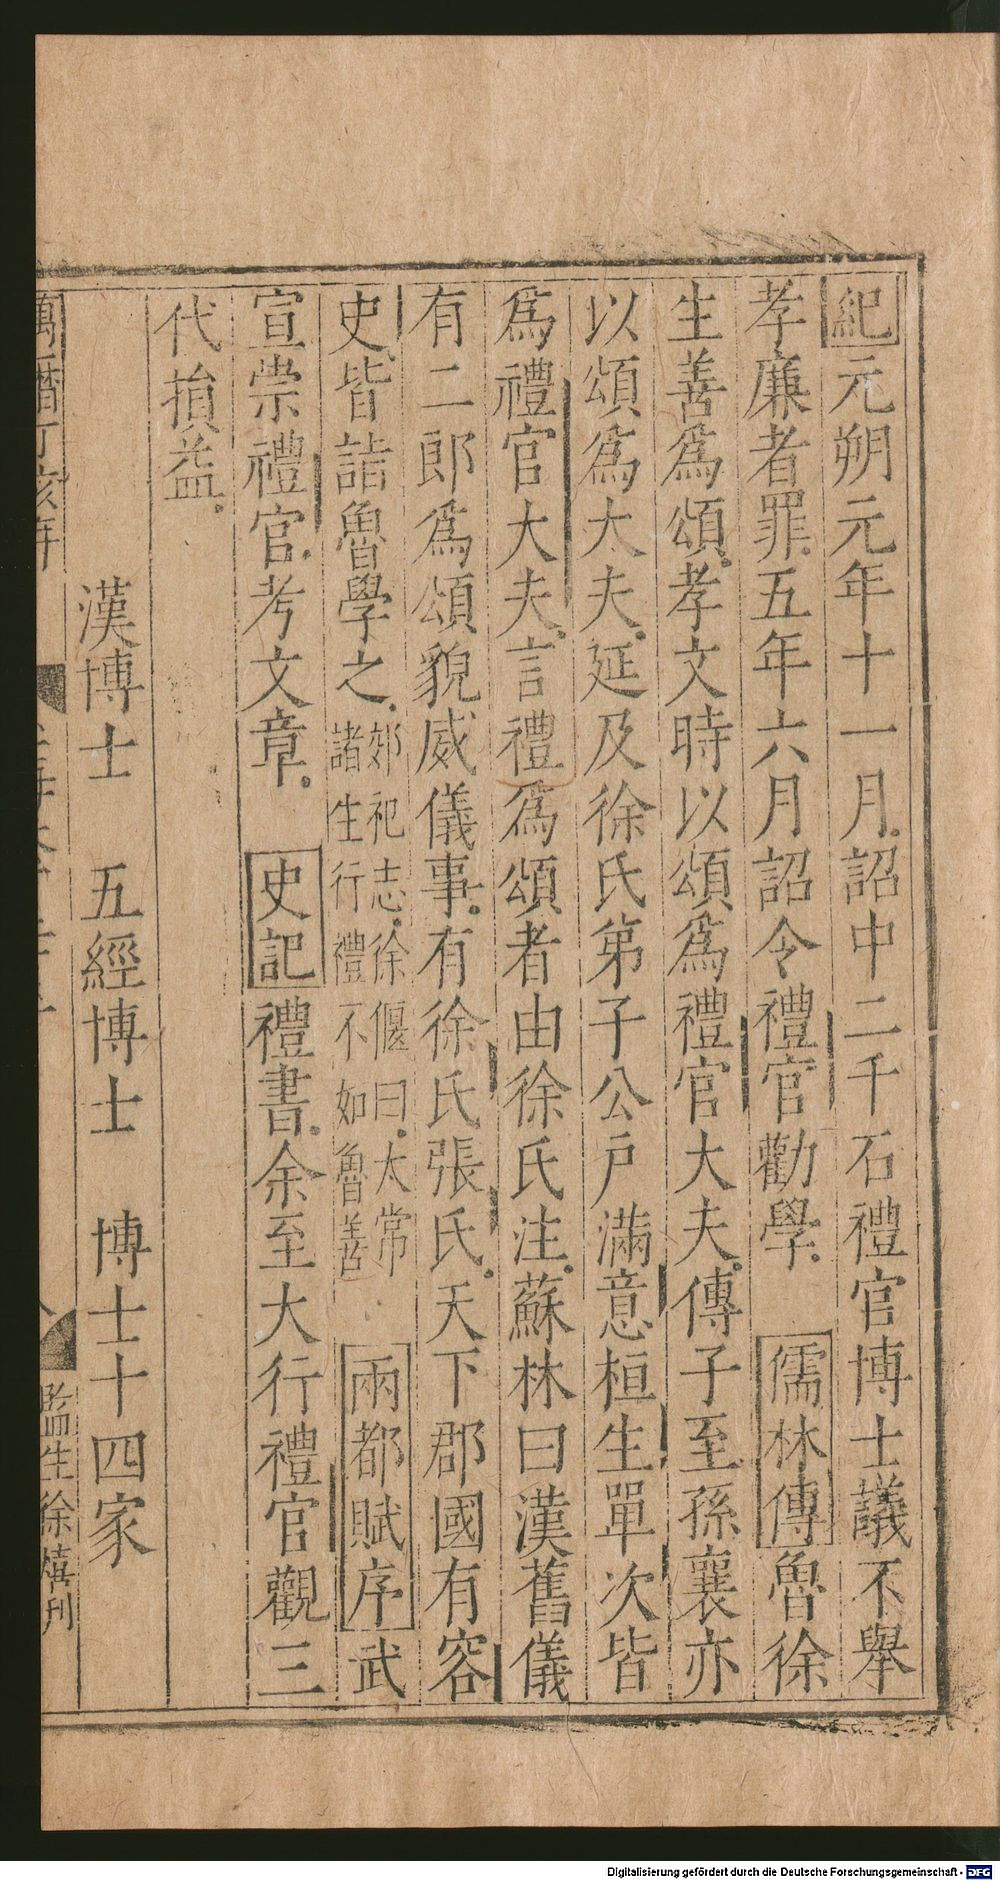 紀元朔元年十一月詔中二千石禮官博士議不舉
孝廉者罪五年六月詔令禮官勸學 儒林傳魯徐
生善爲頌孝文時以頌爲禮官大夫傳子至孫襄亦
以頌爲大夫延及徐氏弟子公戶滿意桓生單次皆
爲禮官大夫言禮爲頌者由徐氏注蘇林曰漢舊儀
有二郎爲頌貌威儀事有徐氏張氏天下郡國有容
史皆詣魯學之郊祀志徐偃曰太常諸生行禮不如魯善 兩都賦序武
宣崇禮官考文章 史記禮書余至大行禮官觀三
代損益
漢博士 五經博士 博士十四家
萬曆丁亥年 監生徐熺刊
Digitalisierung gefördert durch die Deutsche Forschungsgemeinschaft - DFG